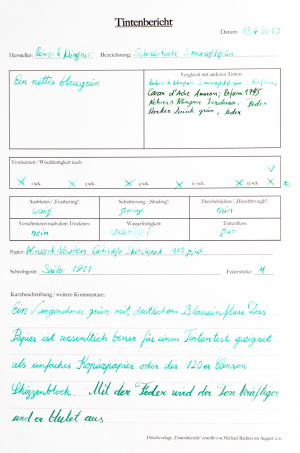 Tintenbericht
Datum: 13.9.2013
Hersteller: Rohrer & Klingner Bezeichnung: Schreibtinte Smaragdgrün
Ein nettes blaugrün
Vergleich mit anderen Tinten:
Rohrer & Klingner Smaragdgrün
Caran d'Ache Amazon; Reform 1745
Rohrer & Klingner Verdura, Feder
grün, Feder
Trockenzeit / Wischfestigkeit nach:
1 sek. 2 sek. 4 sek. 6 sek. 10 sek. 15 sek.
Ausbluten / „Feathering“: Schattierung / „Shading“: Durchdrücken / „Bleedthrough“:
wenig nein
Verschmieren nach dem Trocknen: Wasserfestigkeit: Tintenfluss:
nein gut
Papier: Winsor & Newton Cartridge Sketchpad 110 g/m²
Schreibgerät: Sailor 1911 Federstärke: M
Kurzbeschreibung / weitere Kommentare:
Ein angenehmes grün mit deutlichem Blaueinfluss. Das
Papier ist wesentlich besser für einen Tintentest geeignet
als einfaches Kopierpapier oder der 120er Canson
Skizzenblock. Mit der Feder wird der Ton kräftiger
und er blutet aus
Druckvorlage „Tintenbericht“ erstellt von Michael Richter im August 2011